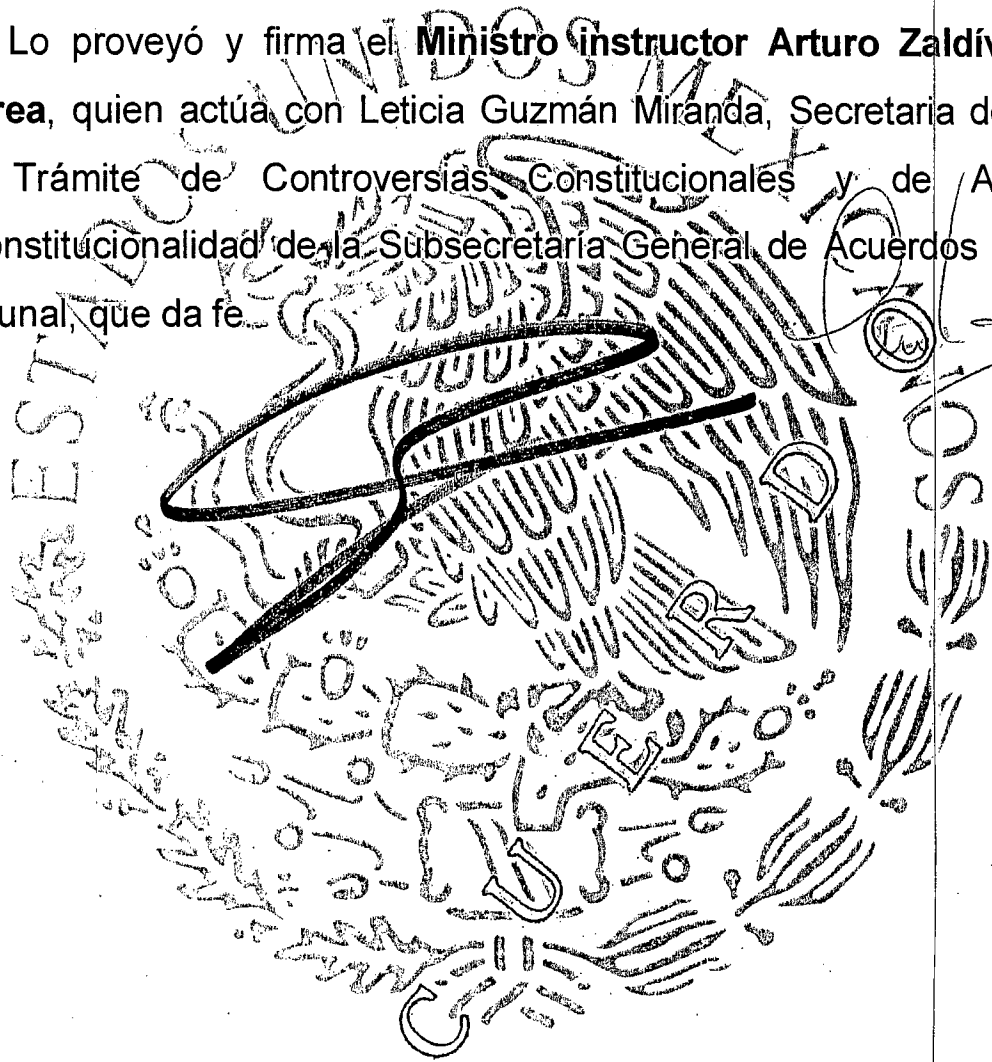 Lo proveyó y firma el Ministro instructor Arturo Zaldív
rea, quien actúa con Leticia Guzmán Miranda, Secretaria d
Trámite de Controversias Constitucionales y de A
onstitucionalidad de la Subsecretaría General de Acuerdos
unal, que da fe.
ESTADOS UNIDOS MEXICANOS
C U E R D O